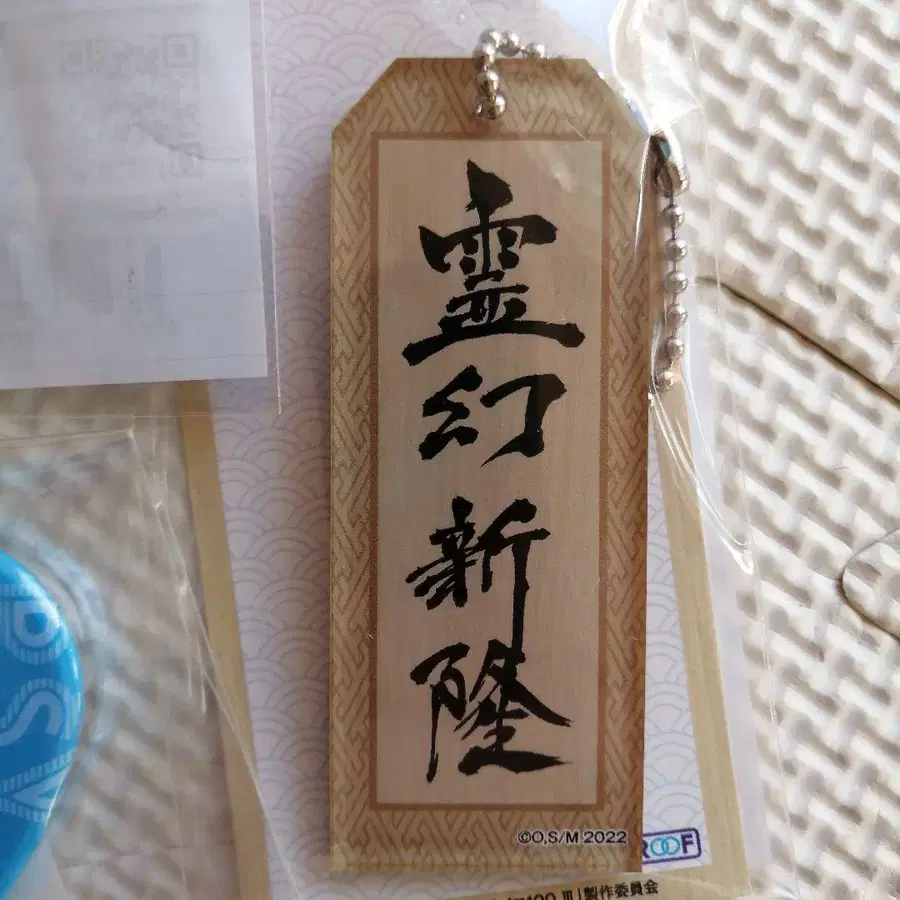 霊幻新隆
©O,S/M 2022
ROOF
100 Ⅲ」製作委員会
PSY